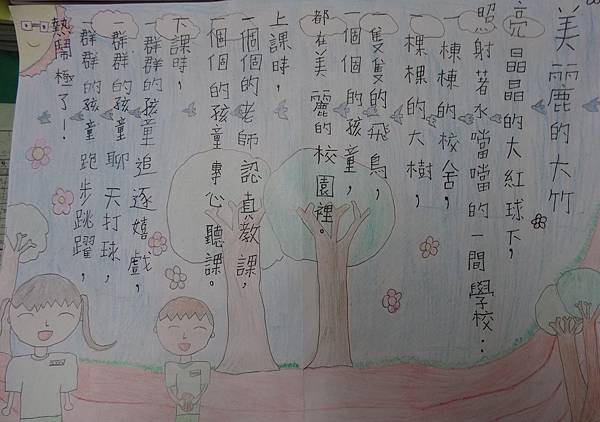 美麗的大竹
亮晶晶的大紅球下，
照射著水噹噹的一間學校：
一棟棟的校舍，
一棵棵的大樹，
一隻隻的飛鳥，
一個個的孩童，
都在美麗的校園裡。
上課時，
一個個的老師認真教課，
一個個的孩童專心聽課。
下課時，
一群群的孩童追逐嬉戲，
一群群的孩童聊天打球，
一群群的孩童跑步跳躍，
熱鬧極了！